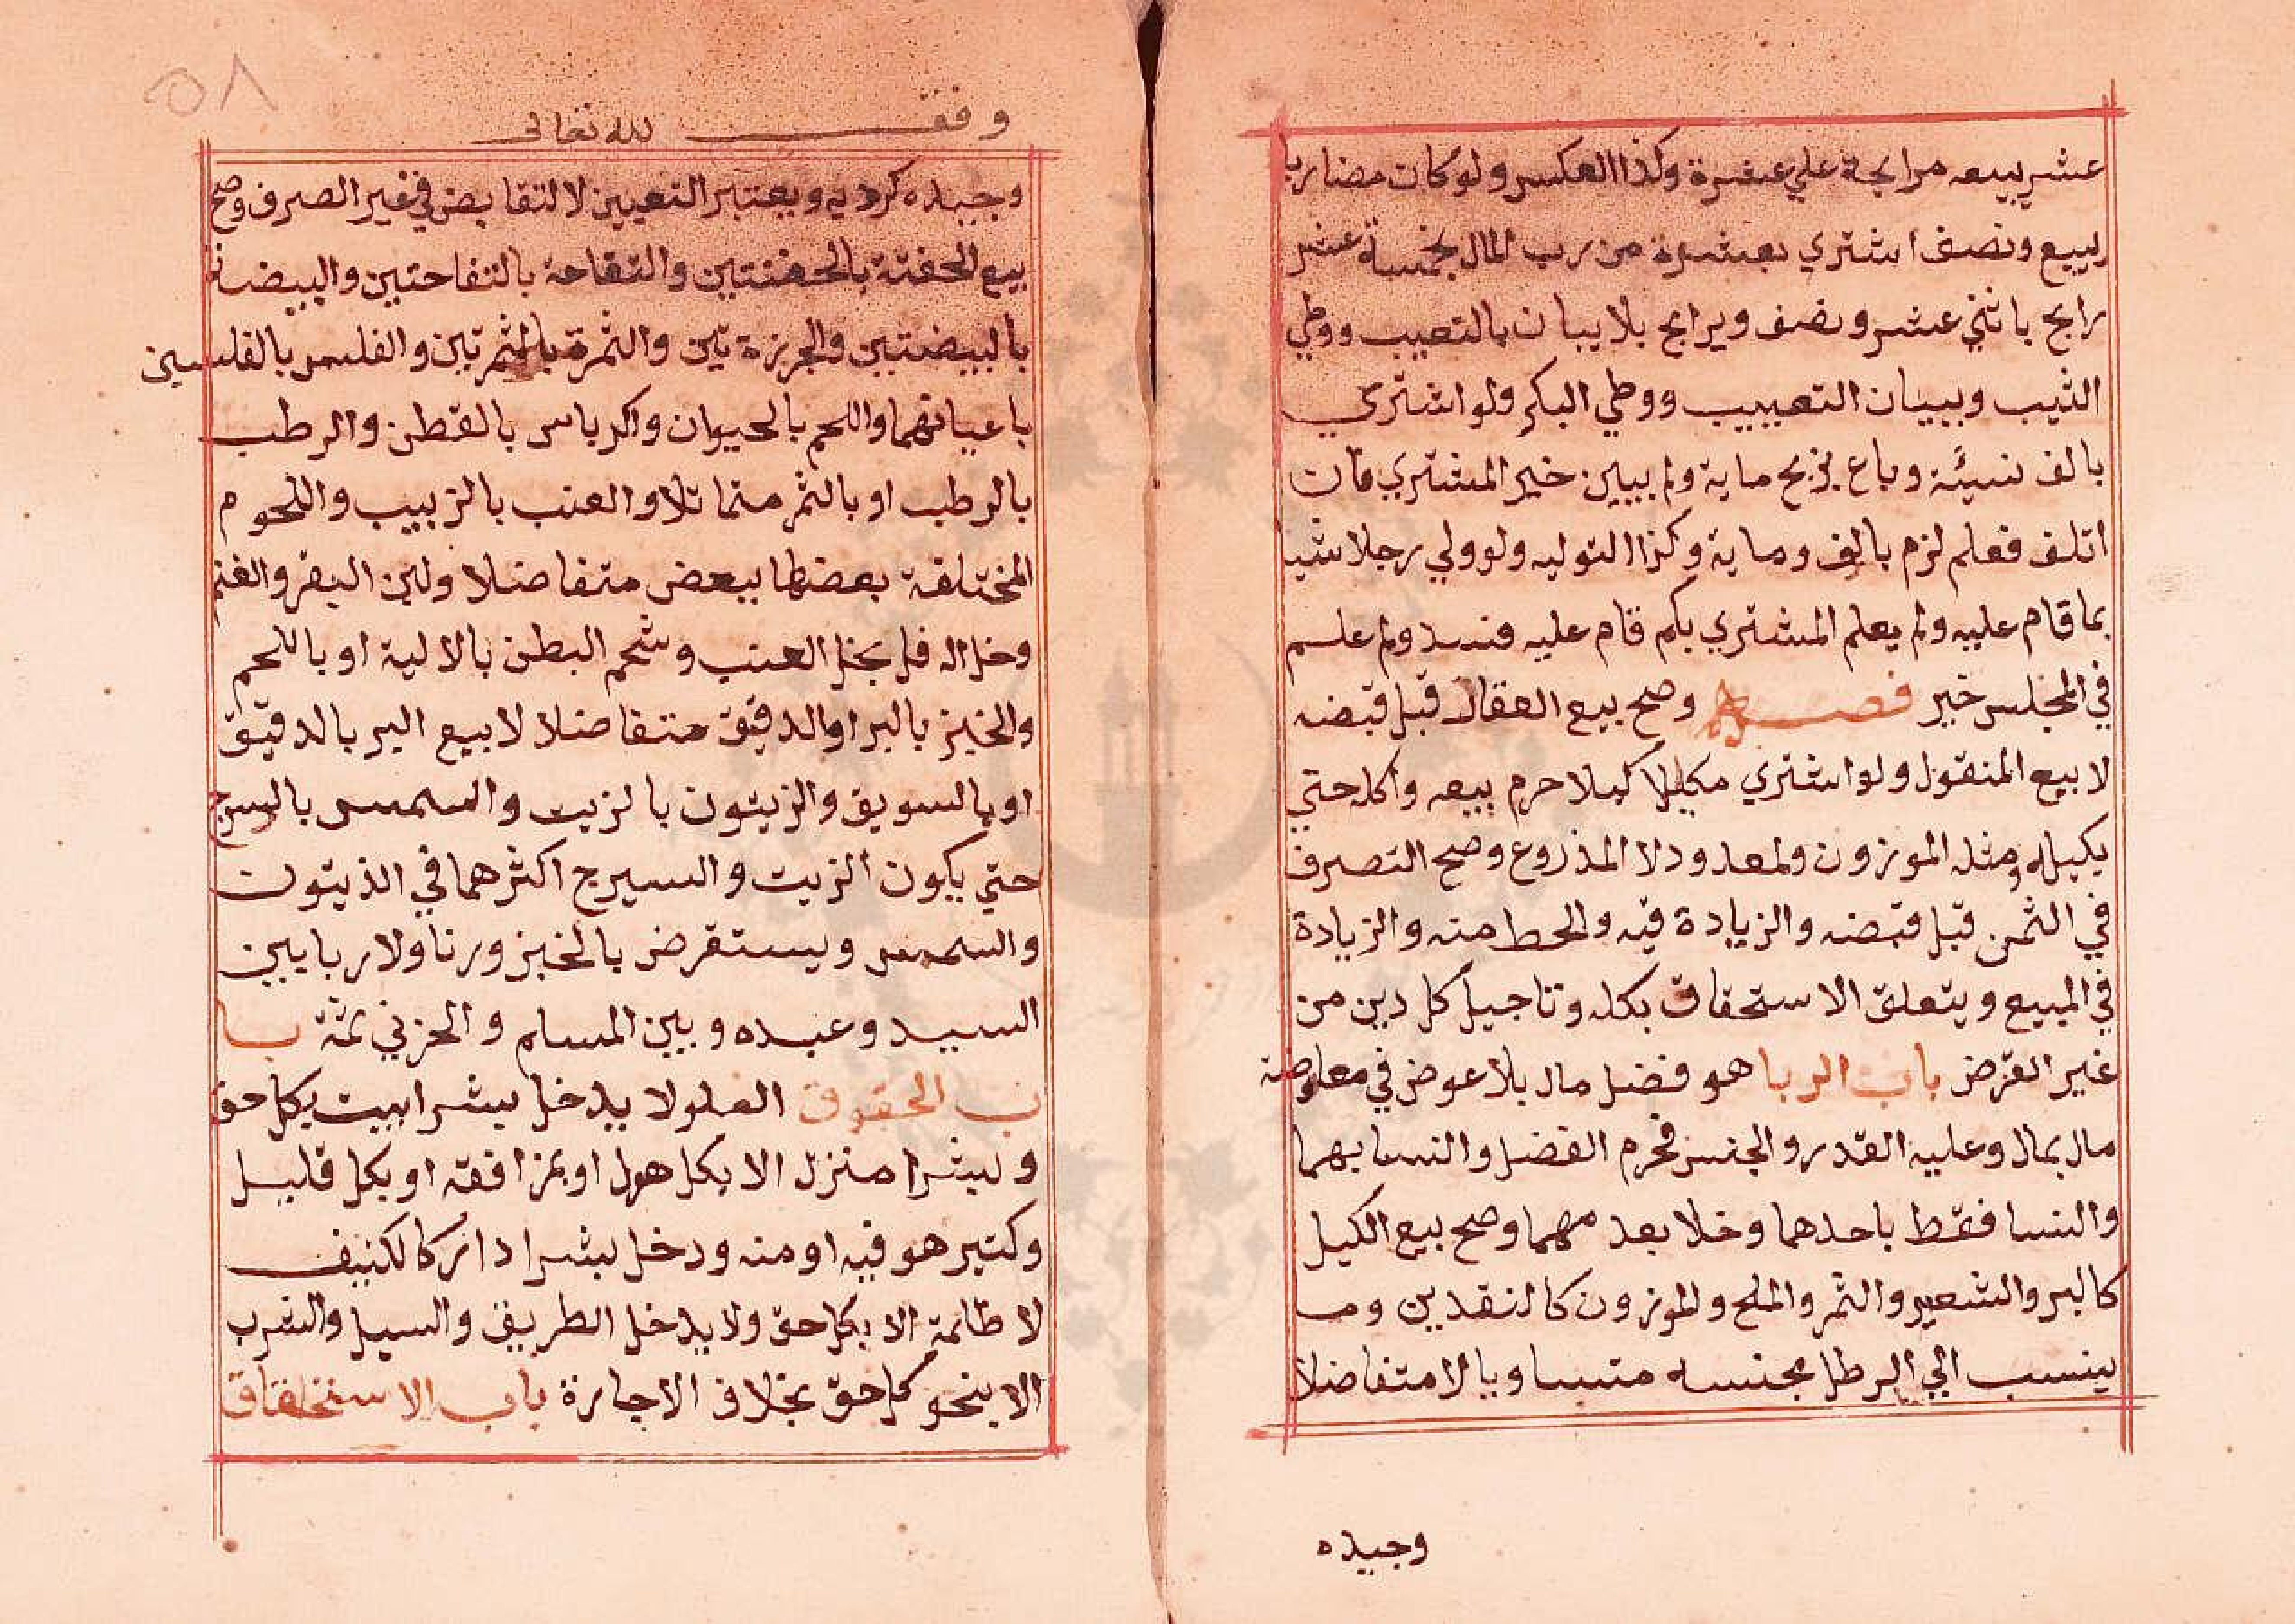 عشر يبيعه مرابحة علي عشرة وكذا العكس ولو كان مضاربا
ربيع ونصف اشتري بعشرة من رب المال بخمسة عشر
رابح باثني عشر ونصف ويرابح بلا بيان بالتعيب ووطي
الثيب وببيان التعييب ووطي البكر ولو اشتري
بالف نسيئة وباع بربح ماية ولم يبين خير المشتري فان
اتلف فعلم لزم بالف وماية وكذا التوليه ولو ولي رجلا شيا
بما قام عليه ولم يعلم المشتري بكم قام عليه فسد ولم علم
في المجلس خير فصل وصح بيع العقار قبل قبضه
لا بيع المنقول ولو اشتري مكيلا كيلا حرم بيعه واكله حتي
يكيله ومثله الموزون ولمعدود لا المذروع وصح التصرف
في الثمن قبل قبضه والزيادة فيه والحط منه والزيادة
في المبيع ويتعلق الاستحقاق بكله وتاجيل كل دين من
غير القرض باب الربا هو فضل مال بلا عوض في معاوضة
مال بمال وعليه القدر والجنس فحرم الفضل والنسا بهما
والنسا فقط باحدهما وخلا بعد مهما وصح بيع الكيل
كالبر والشعير والثمر والملح والموزون كالنقدين وما
ينسب الي الرطل بجنسه متساويا لا متفاضلا
وجيده
٥٨
وقف لله تعالى
وجييده كرديه ويعتبر التعيين لا التقابض في غير الصرف وصح
بيع الحفتة بالحفنتين والتفاحة بالتفاحتين والبيضة
بالبيضتين والجرزة تين والثمرة بالثمرتين والفلس بالفلسين
باعيانهما واللحم بالحيوان واكرباس بالقطن والرطب
بالرطب او بالثمر متماثلا والعنب بالزبيب واللحوم
المختلفة بعضها ببعض متفاضلا ولبن البقر والغنم
وخل الدقل بخل العنب وشحم البطن بالالية او باللحم
والخبز بالبر اوالدقيق متفاضلا لا بيع البر بالدقيق
او بالسويق والزيتون بالزيت والسمسم بالسرج
حتي يكون الزيت والسيرج اكثر هما في الذيتون
والسمسم ويستقرض بالخبز ورنا ولا ربا بين
السيد وعبده وبين المسلم والحزني ثمة با
ب الحقوق العلو لا يدخل بشرا بيت بكل حق
وبشرا منزل الا بكل هول او بمزافقه او بكل قليل
وكتير هو فيه او منه ودخل بشرا دار كالكنيف
لا ظلمة الا بكل حق ولا يدخل الطريق والسيل والشرب
الا بنحو كل حق بخلاف الاجارة باب الاستحقاق